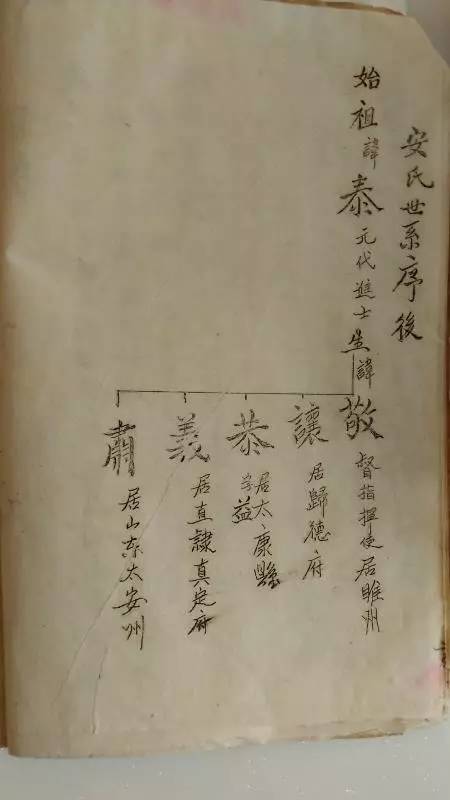 安氏世系序後
始祖諱泰元代進士生諱
敬督指揮使居睢州
讓居歸德府
恭居太康縣
字益
義居直隸真定府
肅居山东太安州